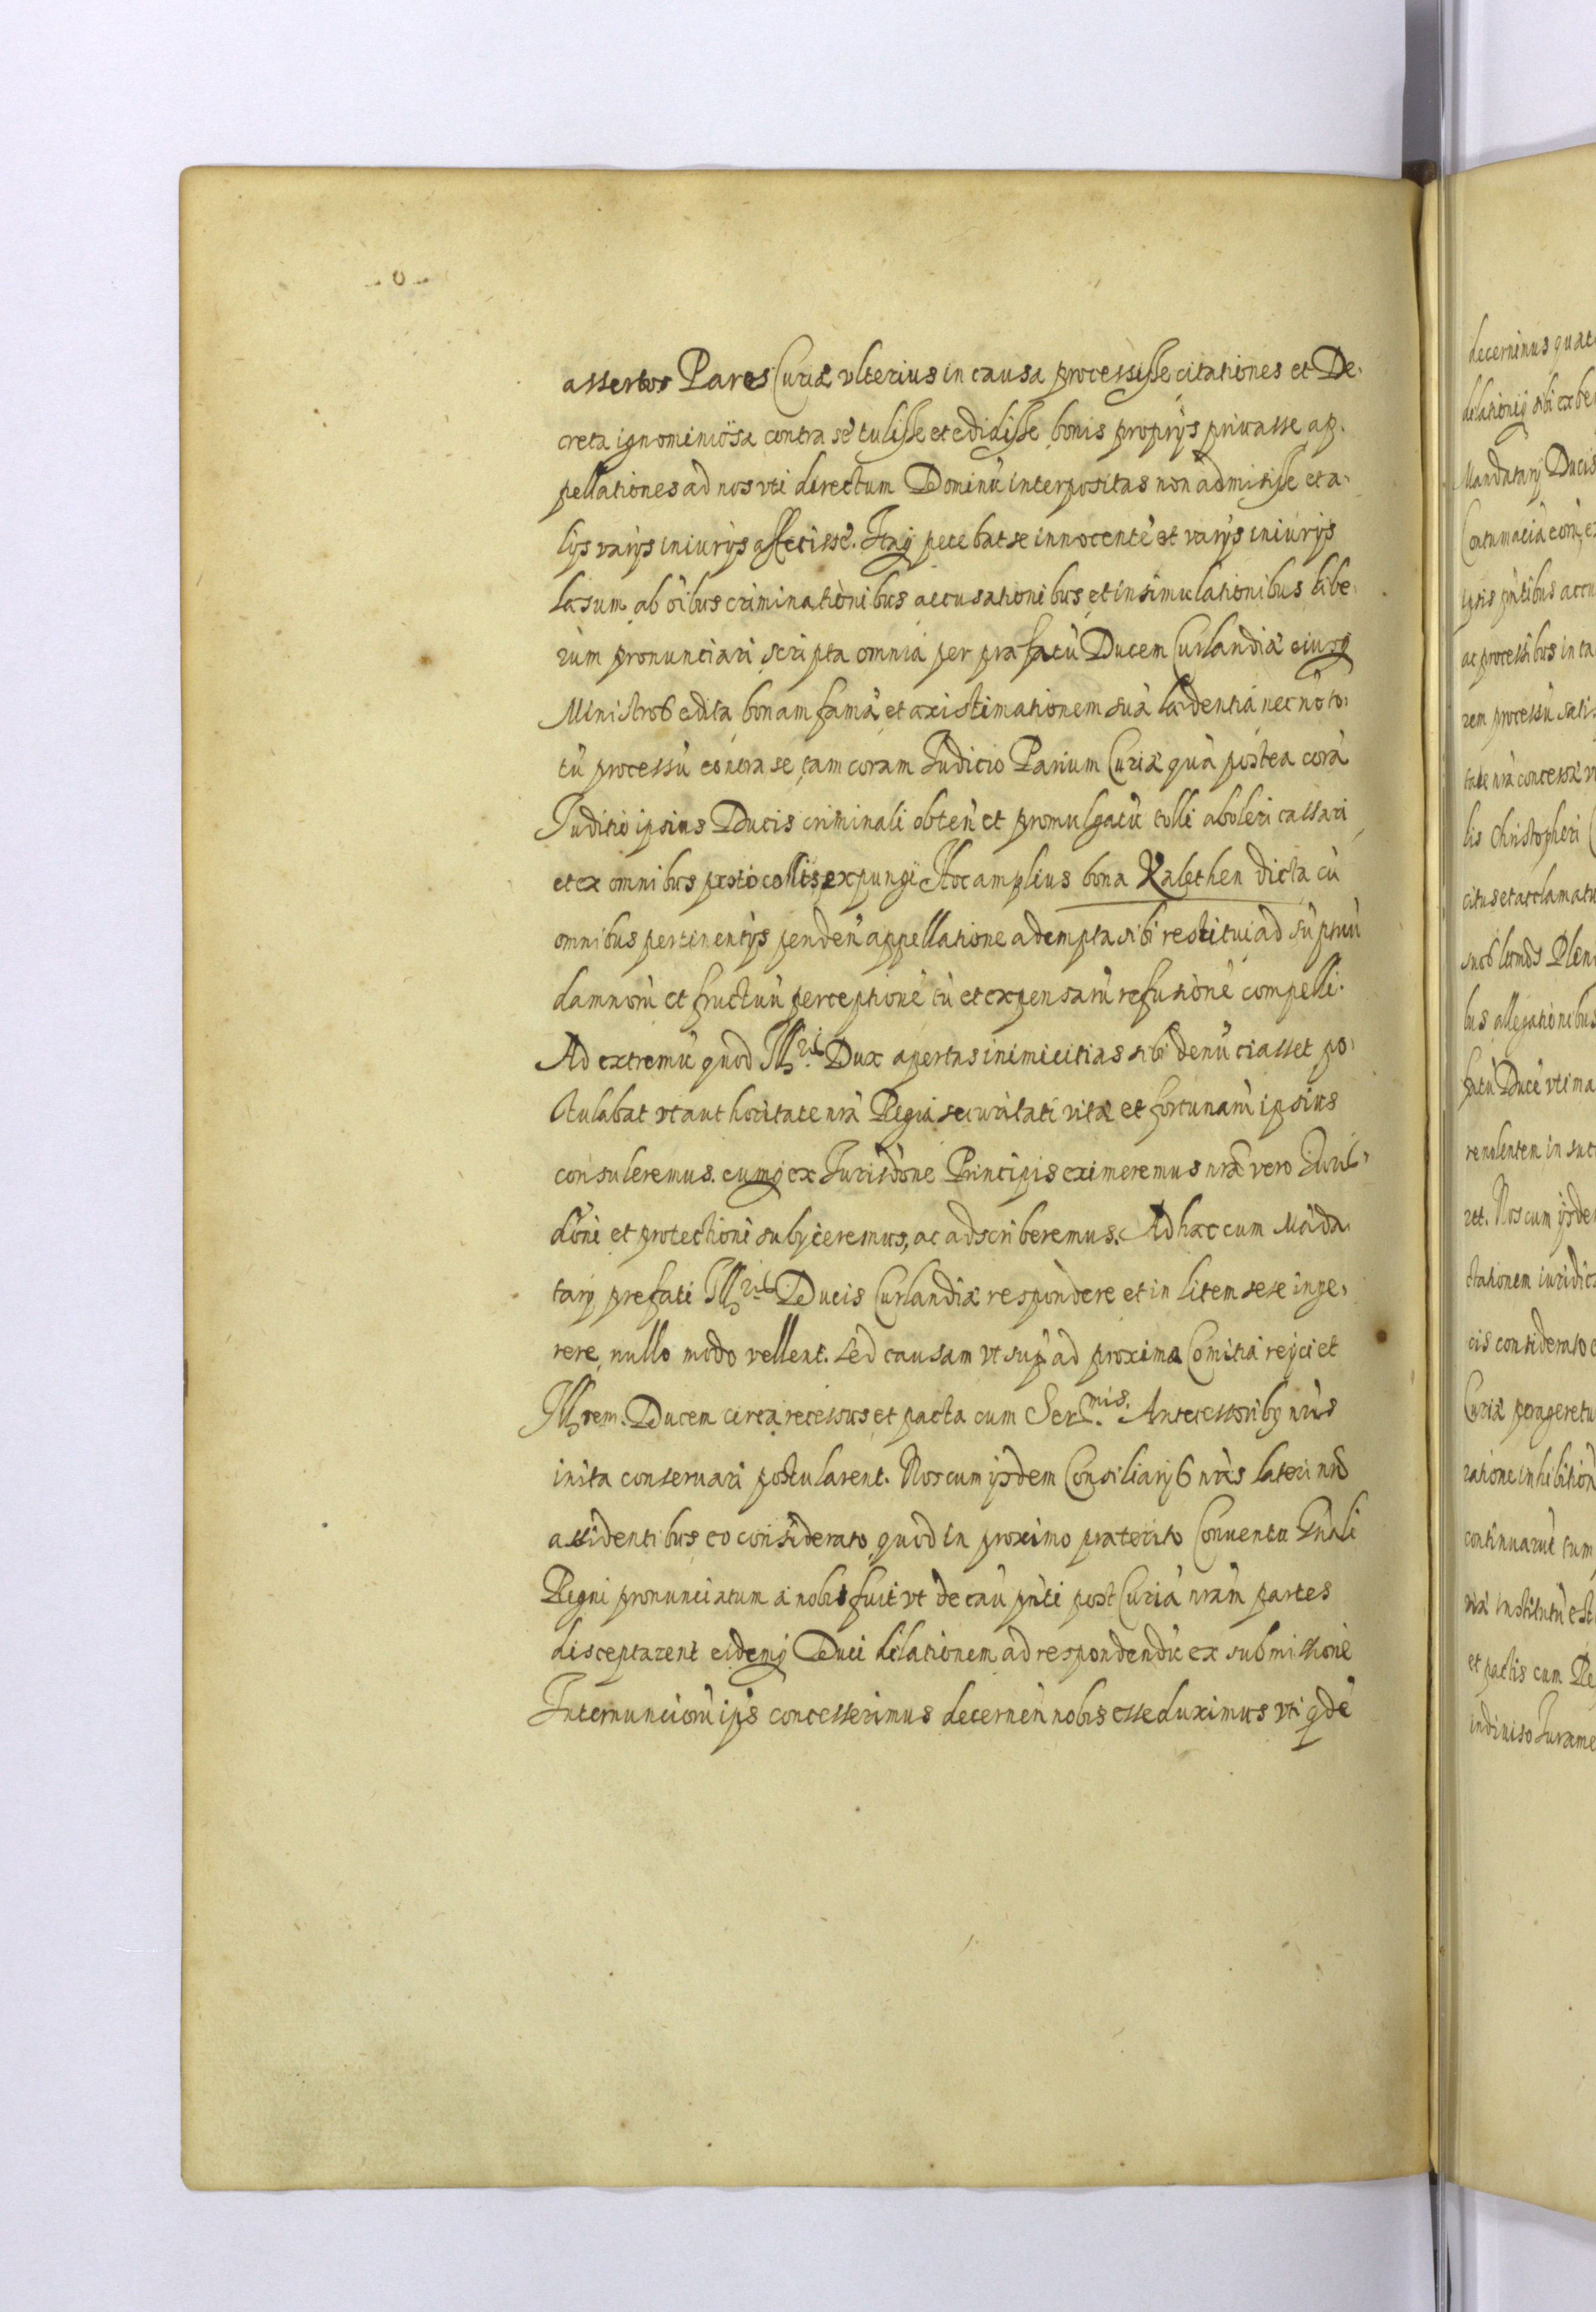 assertos Pares Curiæ vlterius in causa processisse citationes et De-
creta ignominiosa contra se tulisse et edidisse bonis proprijs priuasse ap-
pellationes ad nos vti directum Dominũ interpositas non admisisse et a-
lijs varijs iniurijs affecisse. Itaq petebat se innocentẽ et varijs iniurijs
læsum ab oĩbus criminationibus accusationibus et insimulationibus libe-
rum pronunciari scripta omnia per præfatũ Ducem Curlandiæ eiusq
Ministros edita bonam famã et æxistimationem suã lædentia nec nõ to-
tũ processũ contra se tam coram Iudicio Parium Curiæ quã postea corã
Iuditio ipsius Ducis criminali obten̄ et promulgatũ tolli aboleri cassari
et ex omnibus protocollis expungi Hoc amplius bona Kalethen dicta cũ
omnibus pertinentijs penden̄ appellatione adempta sibi restitui ad
damnorũ et fructuũ perceptionẽ tũ et expensarũ refusionẽ compelli.
Ad extremũ quod Ill Dux apertas inimicitias sibi denũciasset po-
stulabat vt authoritate nrã Regia securitati vitæ et fortunarũ ipsius
consuleremus. eumq ex Jurisdõne Principis eximeremus nræ vero Juris-
dõni et protectioni subijceremus, ac adscriberemus. Ad hæc cum Mãda-
tarij prefati Ill Ducis Curlandiæ respondere et in litem sese inge-
rere nullo modo vellent. sed causam vt sup̃ ad proxima Comitia reijci et
Illrem. Ducem circa recessus et pacta cum Sermis. Antecessoribq nr̃is
inita conseruari postularent. Nos cum ijsdem Consiliarijs nr̃is lateri nr̃o
assidentibus eo considerato quod in proximo præterito Conuentu Gñali
Regni pronunciatum a nobis fuit vt de cau pñti post Curiã nrãm partes
disceptarent eidemq Duci dilationem ad respondendũ ex submissionẽ
Internunciorũ ips̃ concesserimus decernen̄ nobis esse duximus vti qdẽ
decernimus quat
dilationij sibi ex be
Mandatarij Ducis
Contumaciã eorũ e
ipsis pñtibus accu
ac processibus in ca
rem processũ sati
tate nrã concessæ v
lis Christopheri
citus et acclamatu
suos Plen
bus allegationibus
fatũ Ducẽ vti ma
re nolentem in suc
ret. Nos cum ijsde
ctationem iuridic
cis considerato
Curiæ perageretu
ratione inhibition
continuarue tum
riæ institutũ est
et pactis cum Re
indiuiso Jurame